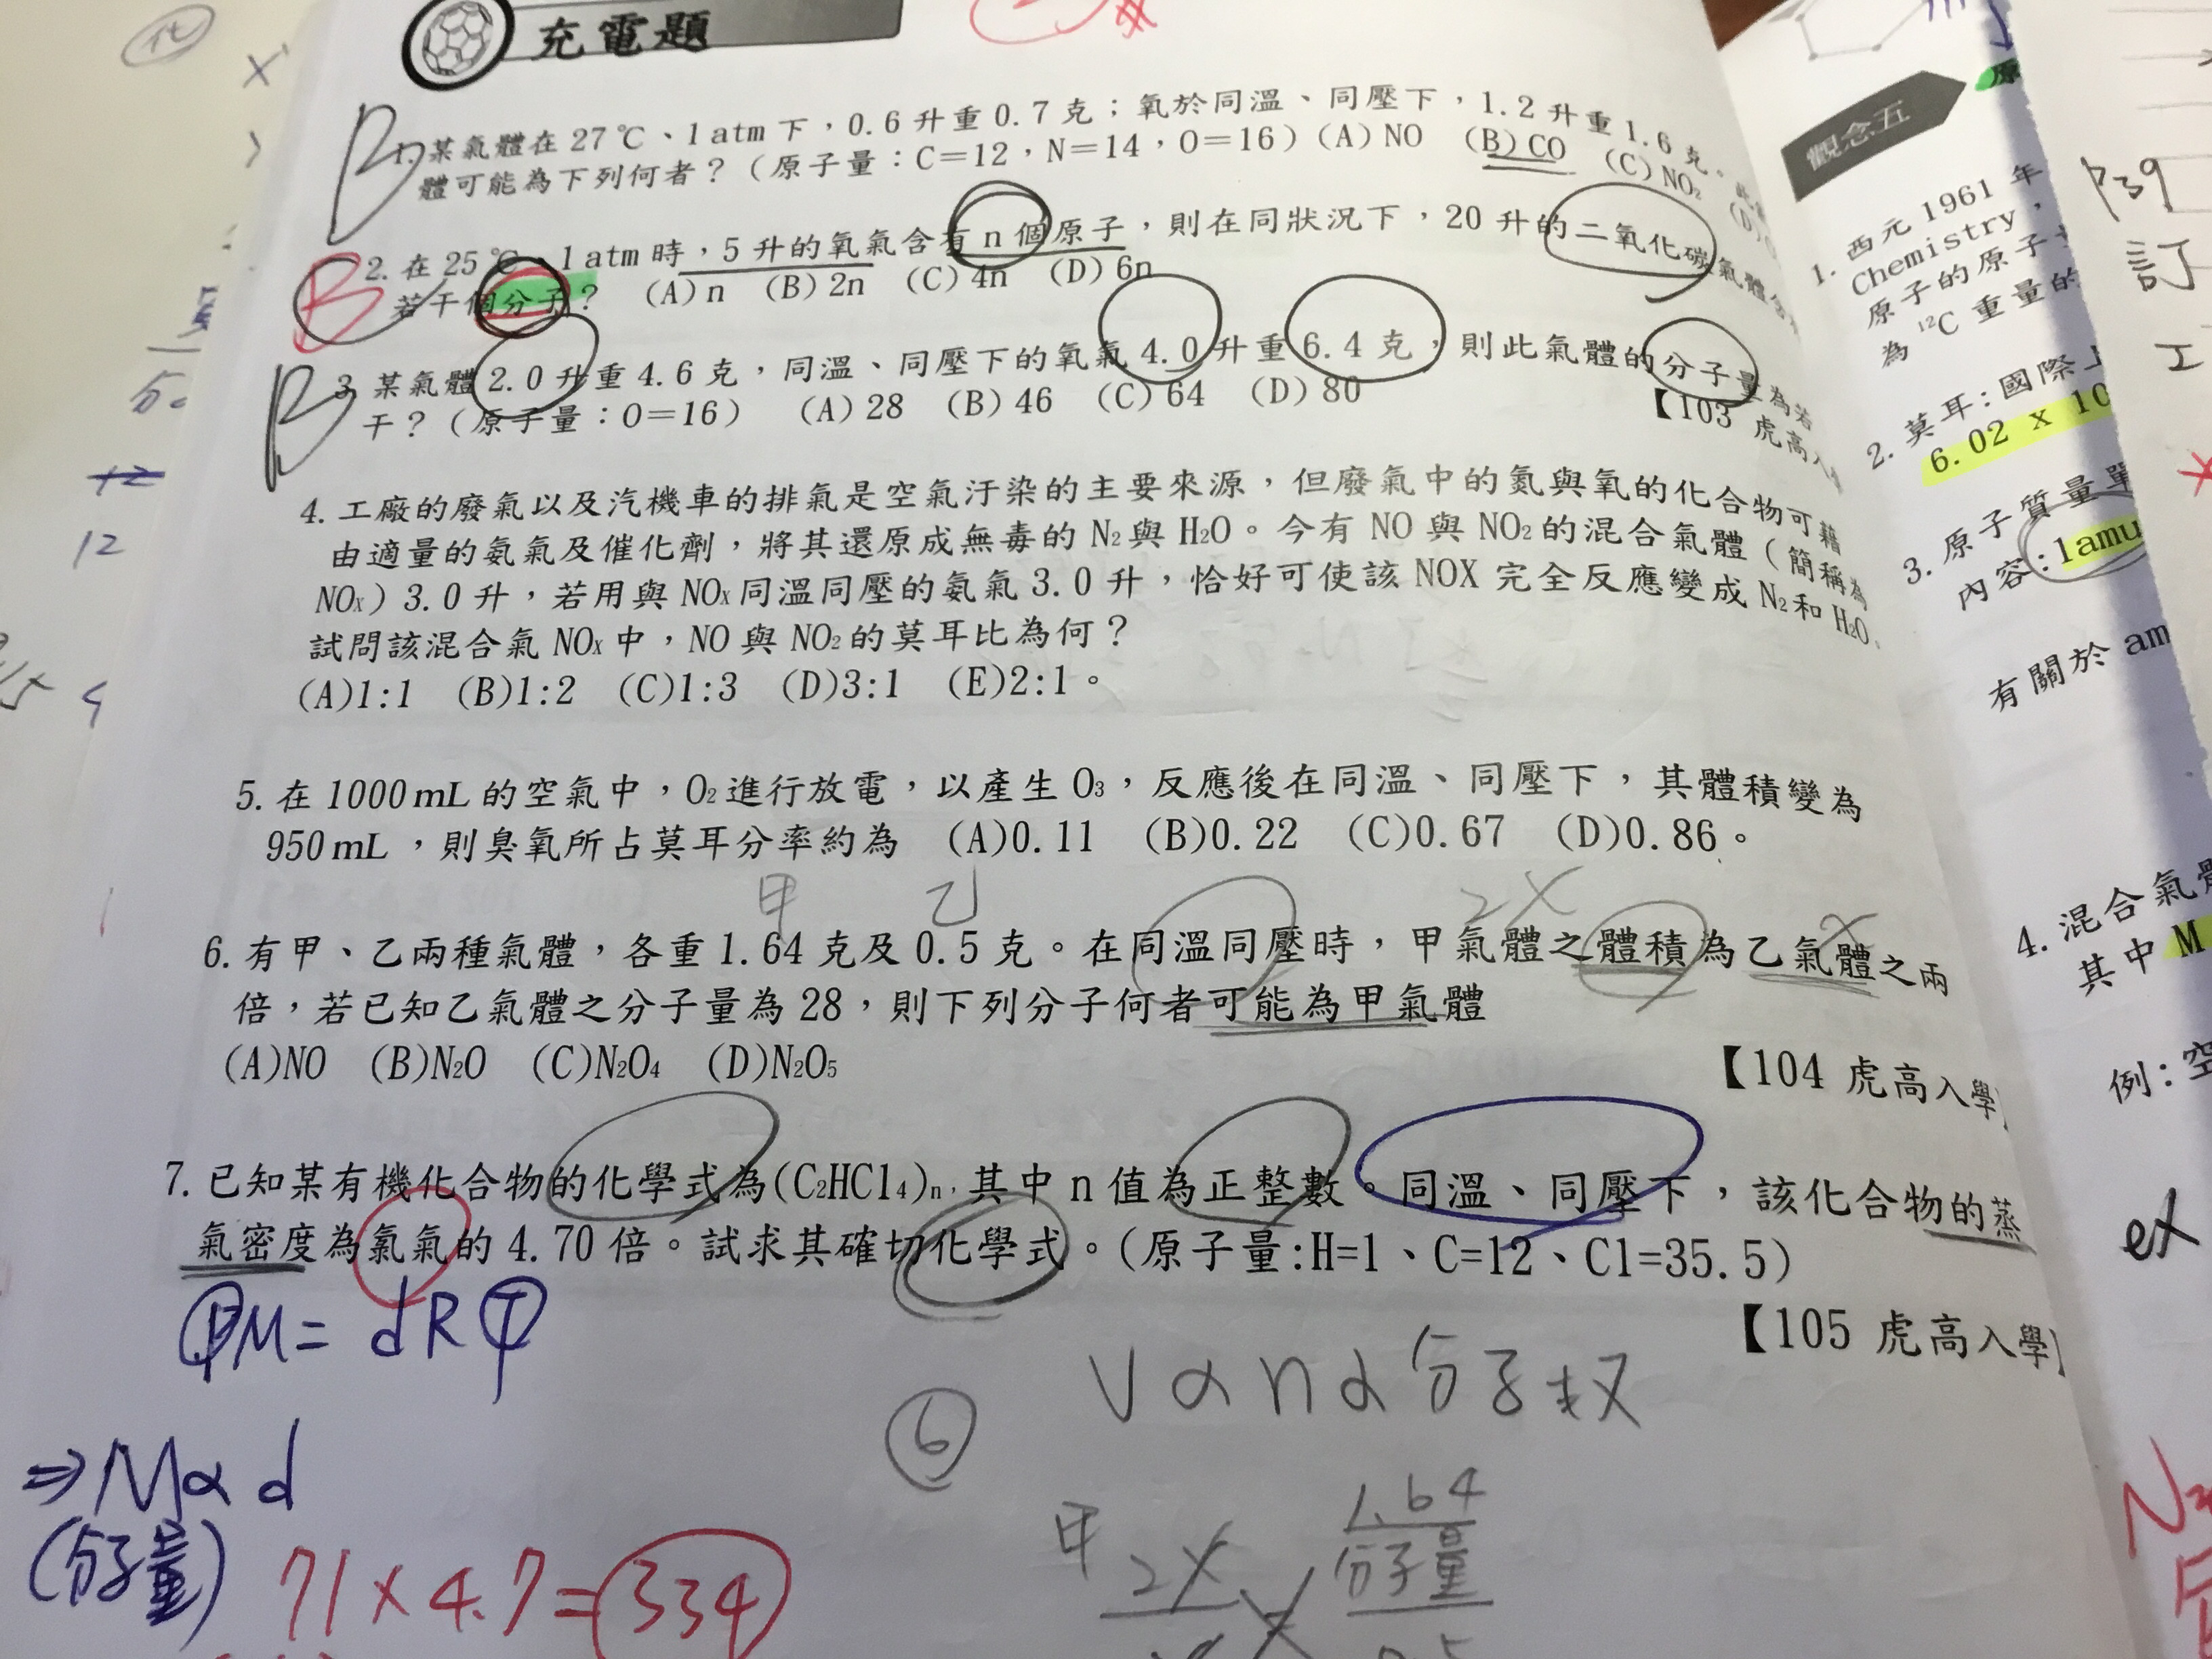 化
充電題
B
1. 某氣體在 27℃、1 atm 下，0.6 升重 0.7 克；氧於同溫、同壓下，1.2 升重 1.6 克。
體可能為下列何者？（原子量：C＝12，N＝14，O＝16）(A) NO (B) CO (C) NO₂ (D)
B
2. 在 25℃、1 atm 時，5 升的氧氣含有 n 個原子，則在同狀況下，20 升的二氧化碳氣體含
若干個分子？ (A) n (B) 2n (C) 4n (D) 6n
B
3. 某氣體 2.0 升重 4.6 克，同溫、同壓下的氧氣 4.0 升重 6.4 克，則此氣體的分子量為若
干？（原子量：O＝16） (A) 28 (B) 46 (C) 64 (D) 80
【103 虎高入
4. 工廠的廢氣以及汽機車的排氣是空氣汙染的主要來源，但廢氣中的氮與氧的化合物可藉
由適量的氨氣及催化劑，將其還原成無毒的 N₂與 H₂O。今有 NO 與 NO₂的混合氣體（簡稱為
NOₓ）3.0 升，若用與 NOₓ同溫同壓的氨氣 3.0 升，恰好可使該 NOX 完全反應變成 N₂和 H₂O.
試問該混合氣 NOₓ中，NO 與 NO₂的莫耳比為何？
(A)1:1 (B)1:2 (C)1:3 (D)3:1 (E)2:1。
5. 在 1000 mL 的空氣中，O₂進行放電，以產生 O₃，反應後在同溫、同壓下，其體積變為
950 mL，則臭氧所占莫耳分率約為 (A)0.11 (B)0.22 (C)0.67 (D)0.86。
甲 乙 2X X
6. 有甲、乙兩種氣體，各重 1.64 克及 0.5 克。在同溫同壓時，甲氣體之體積為乙氣體之兩
倍，若已知乙氣體之分子量為 28，則下列分子何者可能為甲氣體
(A)NO (B)N₂O (C)N₂O₄ (D)N₂O₅
【104 虎高入學】
7. 已知某有機化合物的化學式為(C₂HCl₄)ₙ，其中 n 值為正整數。同溫、同壓下，該化合物的蒸
氣密度為氯氣的 4.70 倍。試求其確切化學式。(原子量:H=1、C=12、Cl=35.5)
【105 虎高入學】
PM = dRT
⇒ M∝ d
(分子量)
71 × 4.7 = 334
V∝n∝分子数
⑥
甲 2X 1.64
分子量
12
12
觀念五
1. 西元 1961 年
Chemistry，
原子的原子
為 ¹²C 重量的
2. 莫耳:國際
6.02 x 10
3. 原子質量單
內容:1amu
有關於 am
4. 混合氣體
其中 M
例:空
ex
P39
訂